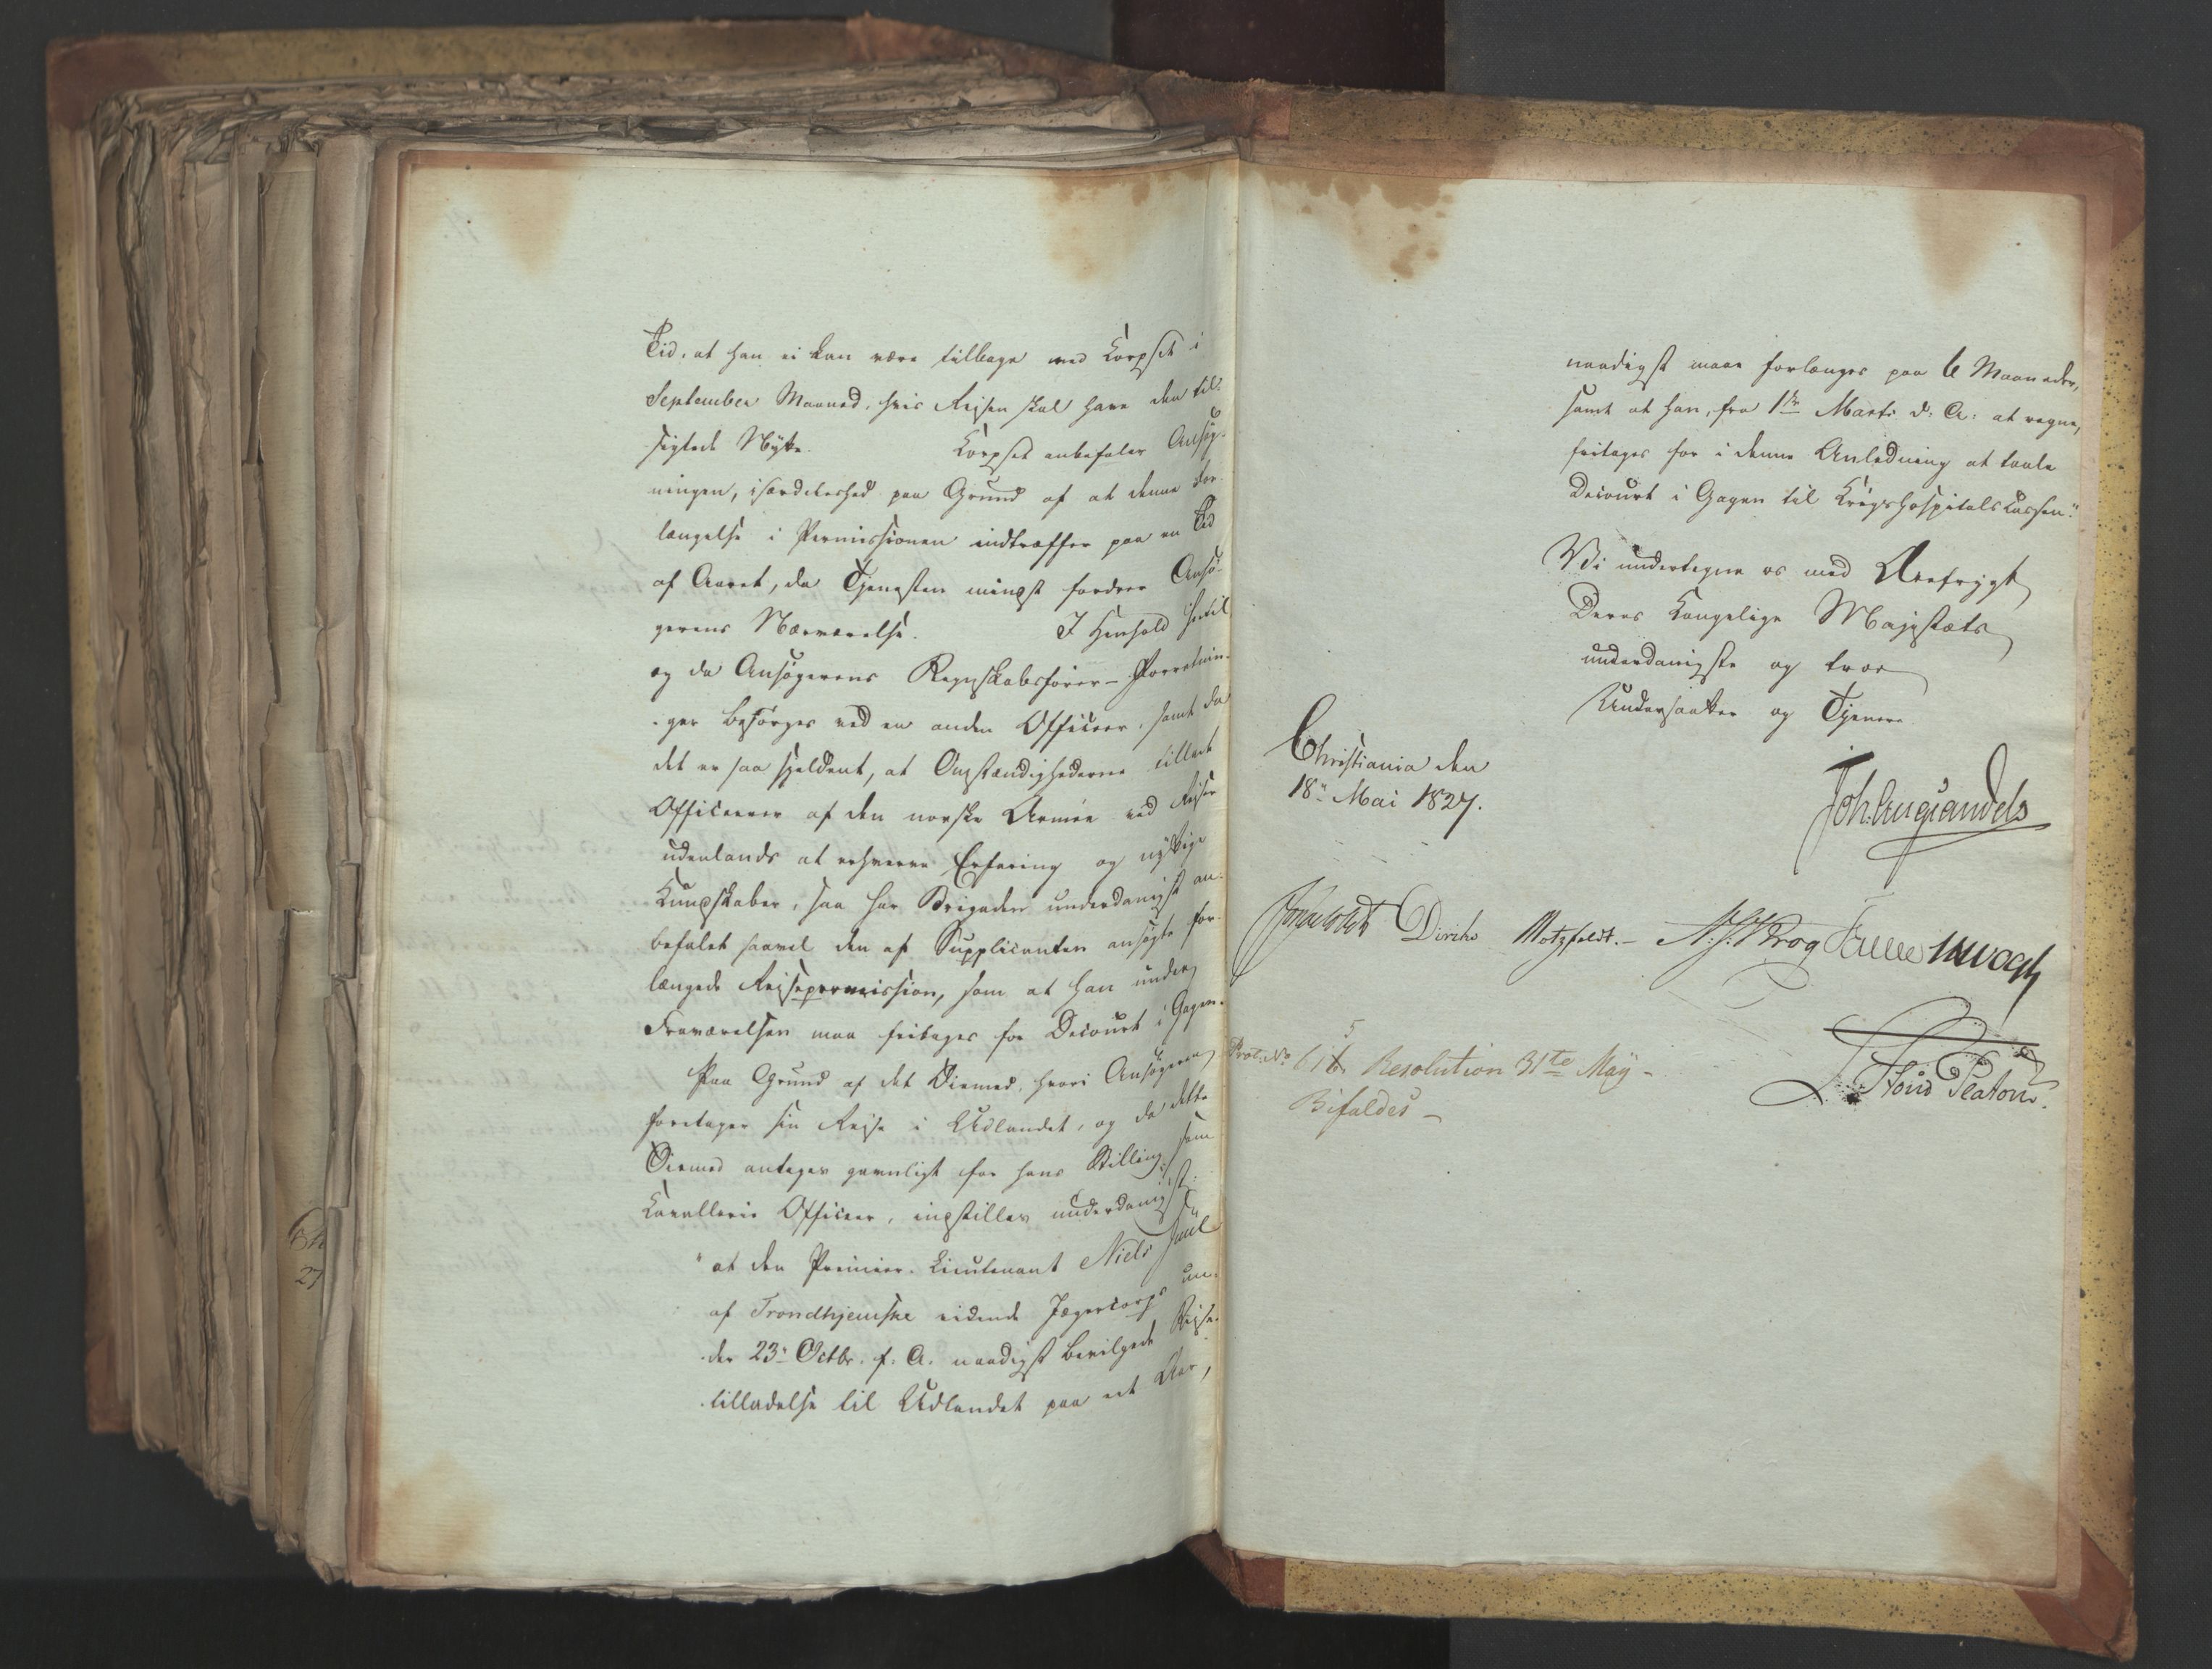 Tid, at han ei kan være tilbage ved Korpset i
September Maaned, hvis Reisen skal have den til-
sigtede Nytte. Korpset anbefaler Ansøg-
ningen, isærdeleshed paa Grund af at denne For-
længelse i Permissionen indtræffer paa en Tid
af Aaret, da Tjenesten mindst fordrer Ansø-
gerens Nærværelse. I Henhold hertil
og da Ansøgerens Regnskabsfører-Forretnin-
ger besørges ved en anden Officeer, samt da
det er saa sjeldent, at Omstændighederne tillade
Officerer af den norske Armee ved Reiser
udenlands at erhverve Erfaring og nyttige
Kundskaber, saa har Brigaden underdanigst an-
befalet saavel den af Supplicanten ansøgte for-
længede Reisepermission, som at han under
Fraværelsen maa fritages for Decourt i Gagen.
Paa Grund af det Øiemed, hvori Ansøgeren
foretager sin Reise i Udlandet, og da dette
Øiemed antages gavnligt for hans Stilling som
Kavallerie Officeer, indstilles underdanigst:
"at den Premier-Lieutenant Niels Juul
af Trondhjemske ridende Jægercorps un-
der 23de Octbr. f. A. naadigst bevilgede Reise-
tilladelse til Udlandet paa eet Aar,
naadigst maae forlænges paa 6 Maaneder,
samt at han, fra 1ste Marts d: A: at regne,
fritages for i denne Anledning at taale
Decourt i Gagen til Krigshospitalskassen."
Vi undertegne os med Ærefrygt
Deres Kongelige Majestæts
underdanigste og troe
Undersaatter og Tjenere
Christiania den
18de Mai 1827.
Joh. Aug. Sandels
Diriks Motzfeldt.- N. J. Krog
Prot: No 615 Resolution 31te Maÿ -
Bifaldes -